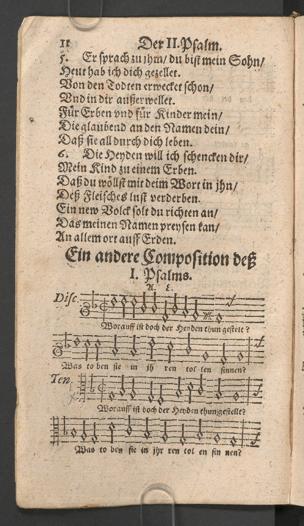 12 Der II. Psalm.
5. Er sprach zu jhm/ du bist mein Sohn/
Heut hab ich dich gezellet.
Von den Todten erwecket schon/
Vnd in dir außerwellet.
Für Erben vnd für Kinder mein/
Die glaubend an den Namen dein/
Daß sie all durch dich leben.
6. Die Heyden will ich schencken dir/
Mein Kind zu einem Erben.
Daß du wöllst mit deim Wort in jhn/
Deß Fleisches lust verderben.
Ein new Volck solt du richten an/
Das meinen Namen preysen kan/
An allem ort auff Erden.
Ein andere Composition deß
I. Psalms.
Disc.
Worauff ist doch der Heyden thun gestelt?
Was to ben sie in jh ren tol len sinnen?
Ten.
Worauff ist doch der Heyden thun gestellt?
Was to ben sie in jhr ren tol en sin nen?